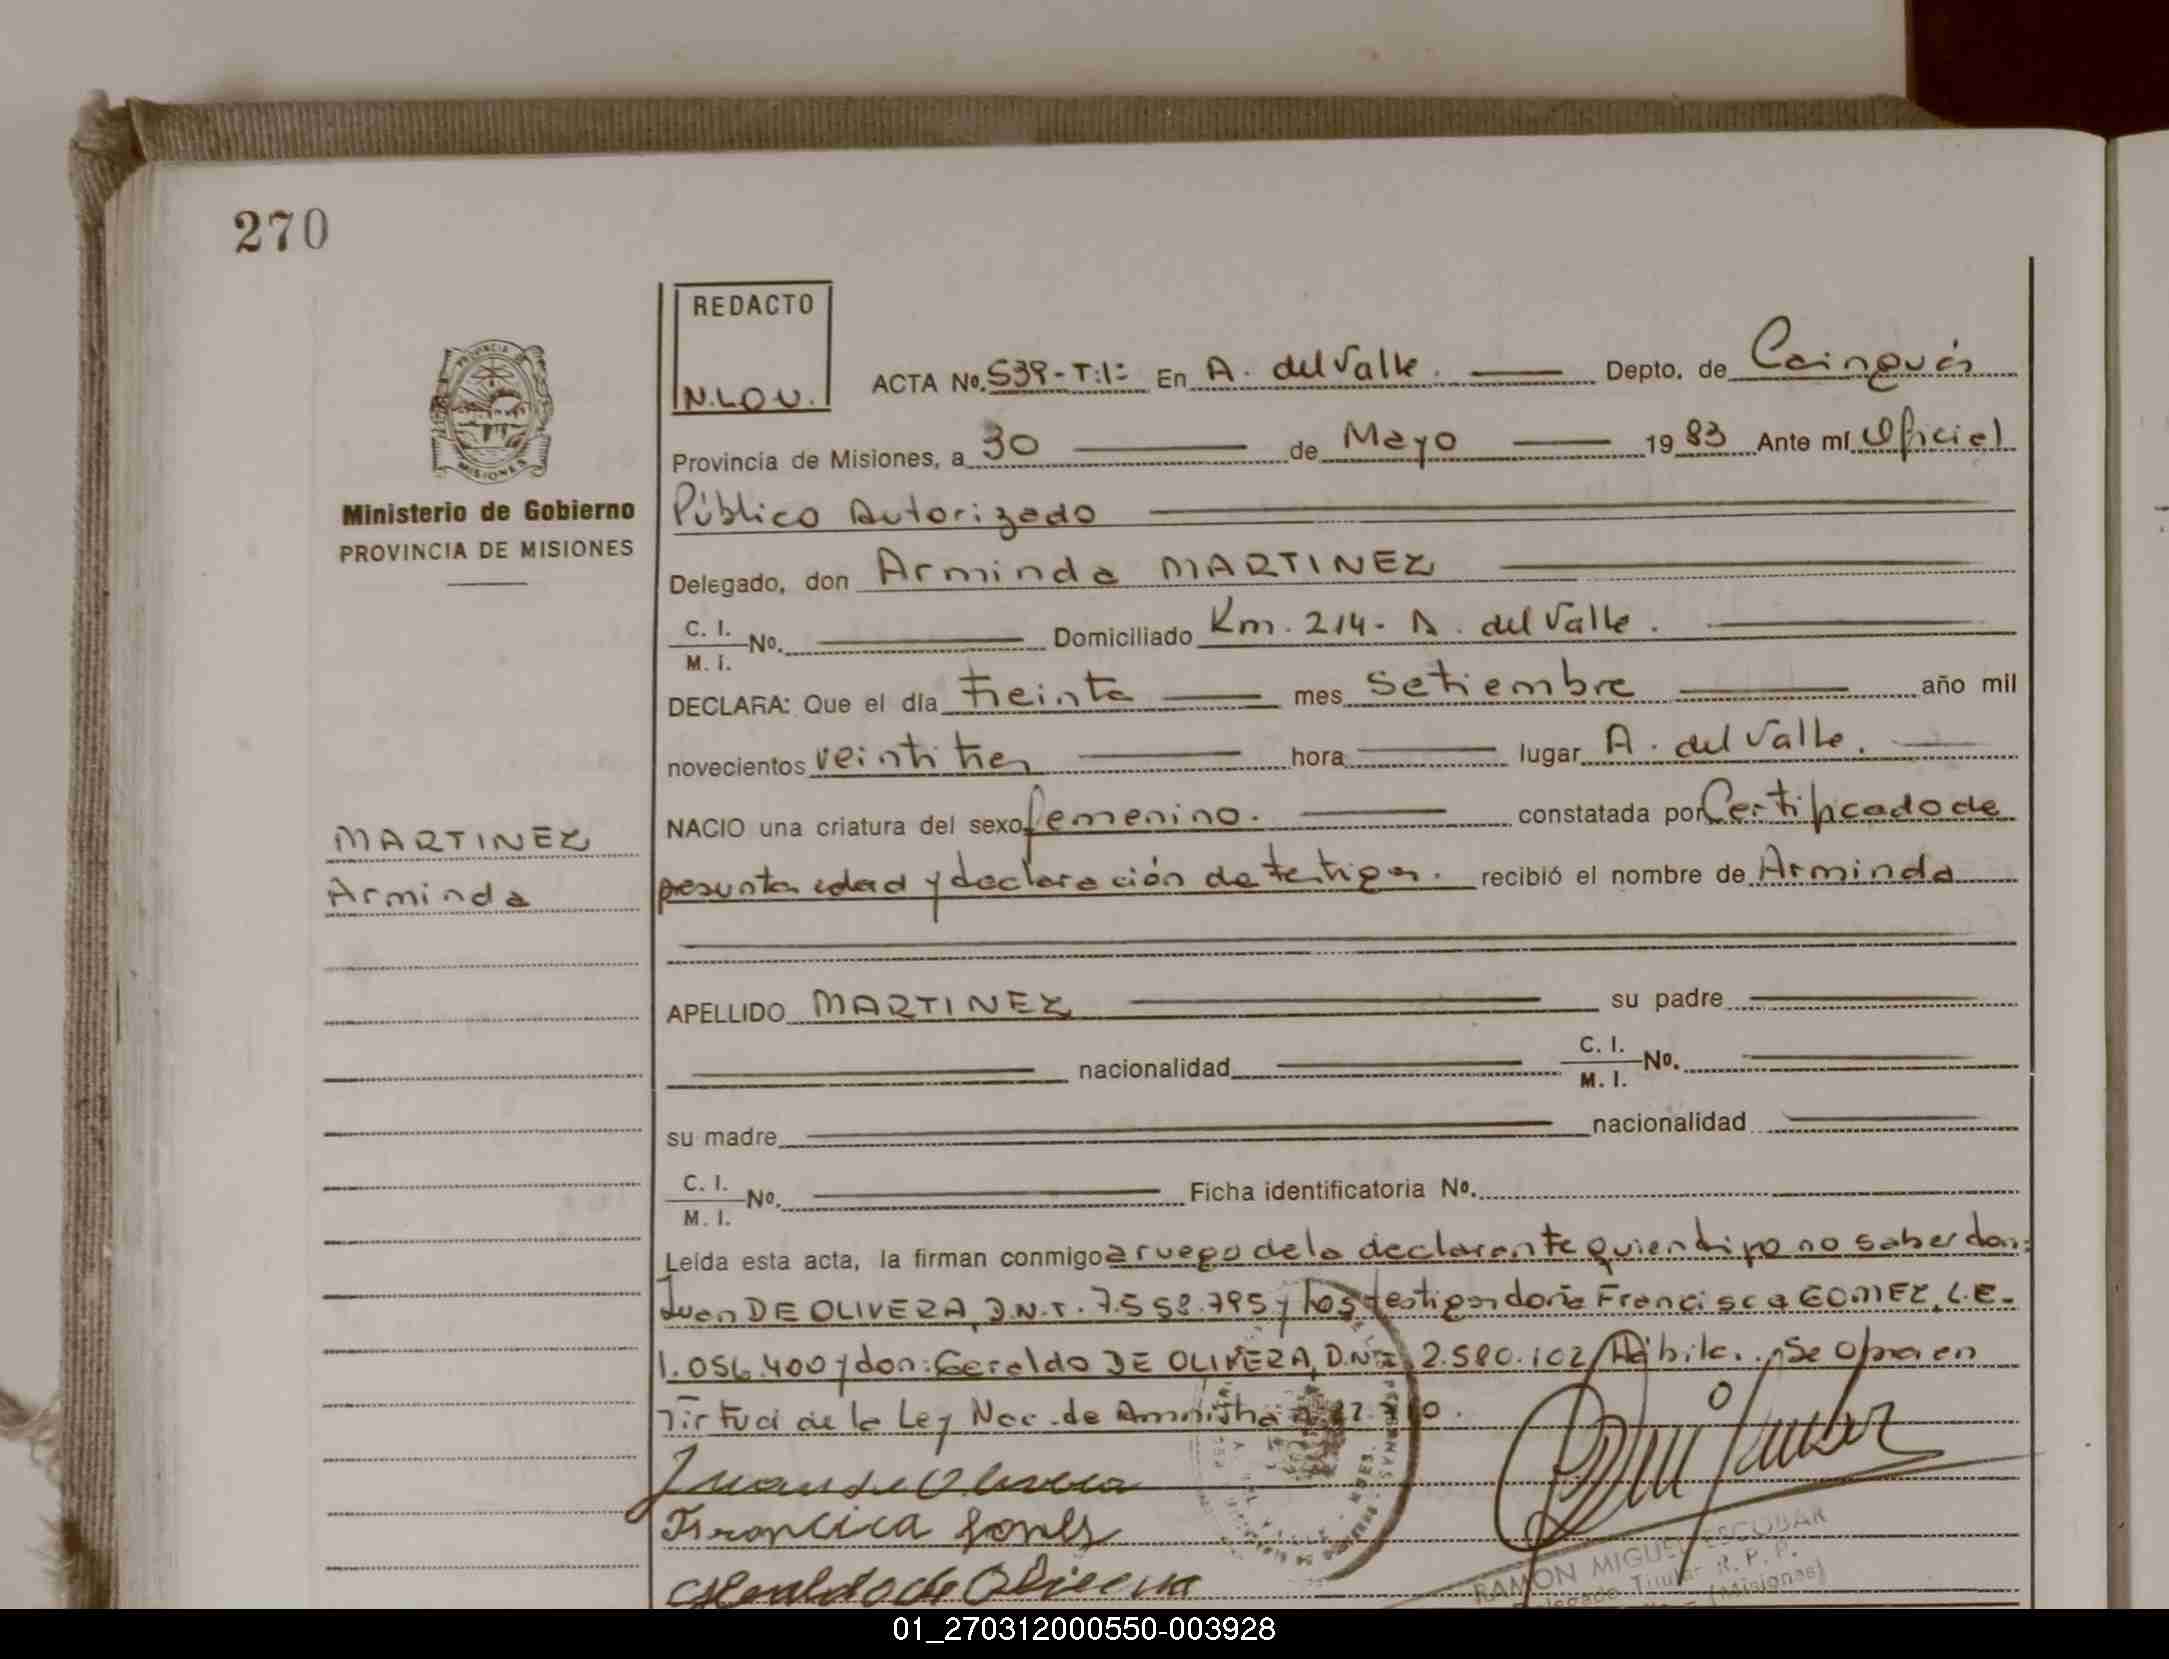 270
REDACTO
N.L.O.U.
ACTA No. 539-T:1: En A. del Valle. Depto. de Cainguás
Provincia de Misiones, a 30 de Mayo 1983 Ante mí Oficial
Público Autorizado
PROVINCIA DE
MISIONES
Ministerio de Gobierno
PROVINCIA DE MISIONES
Delegado, don Arminda MARTINEZ
C. I. M. I. No. Domiciliado Km. 214 - A. del Valle.
DECLARA: Que el día treinta mes setiembre año mil
novecientos veintitres hora lugar A. del Valle.
NACIO una criatura del sexo femenino. constatada por Certificado de
MARTINEZ
Arminda
presunta edad y declaración de testigos. recibió el nombre de Arminda
APELLIDO MARTINEZ su padre
nacionalidad C. I. M. I. No.
su madre nacionalidad
C. I. M. I. No. Ficha identificatoria No.
Leída esta acta, la firman conmigo a ruego de la declarante quien dijo no saber don:
Juan DE OLIVERA, D.N.I. 7.558.795 y los testigos doña Francisca GOMEZ, L.E.
1.056.400 y don: Geraldo DE OLIVERA, D.N.I. 2.580.102 Hábiles. Se opera en
Virtud de la Ley Nac. de Amnistía
Juan de Olivera
Francisca Gomez
Geraldo de Olivera
RAMON MIGUEL ESCOBAR
Delegado Titular R. P. P.
(Misiones)
01_270312000550-003928